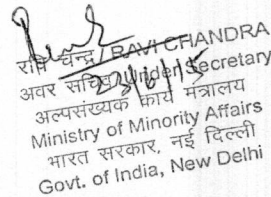 रवि चन्द्र / RAVI CHANDRA
अवर सचिव/Under Secretary
23/6/15
अल्पसंख्यक कार्य मंत्रालय
Ministry of Minority Affairs
भारत सरकार, नई दिल्ली
Govt. of India, New Delhi